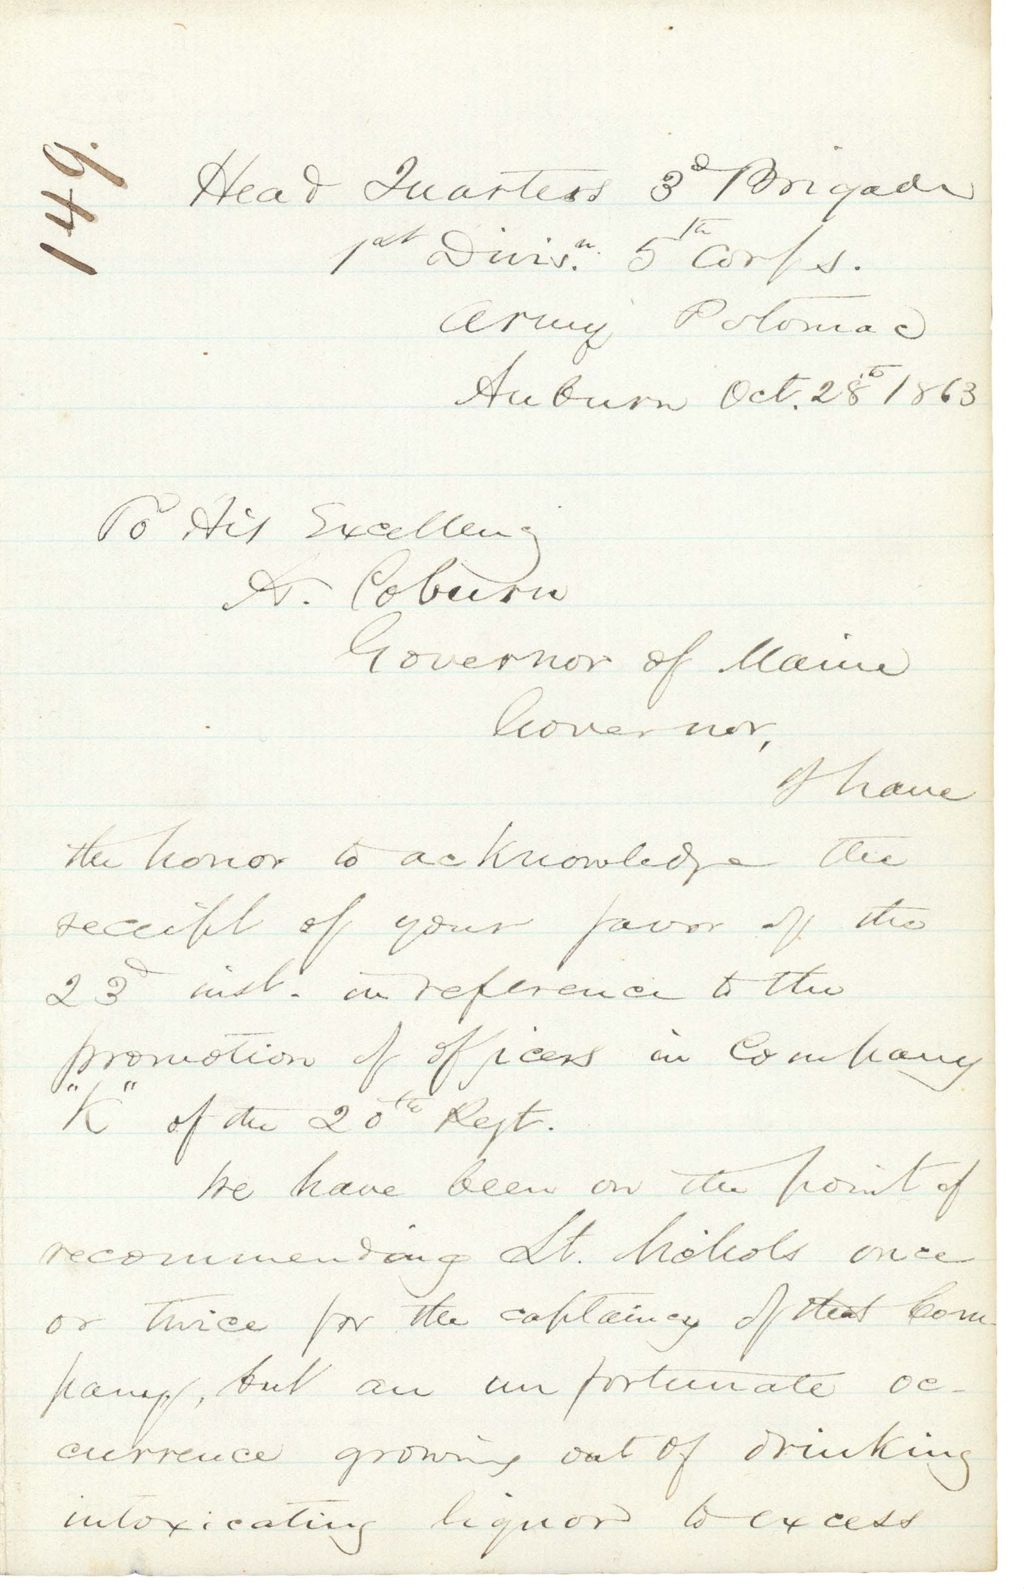 149.
Head Quarters 3d Brigade
1st Divisn. 5th Corps.
Army Potomac
Auburn Oct. 28th 1863
To His Excellency
A. Coburn
Governor of Maine
Governor,
I have
the honor to acknowledge the
receipt of your favor of the
23d inst. in reference to the
promotion of officers in Company
"K" of the 20th Regt.
We have been on the point of
recommending Lt. Nichols once
or twice for the captaincy of that Com-
pany, but an unfortunate oc-
currence growing out of drinking
intoxicating liquor to excess